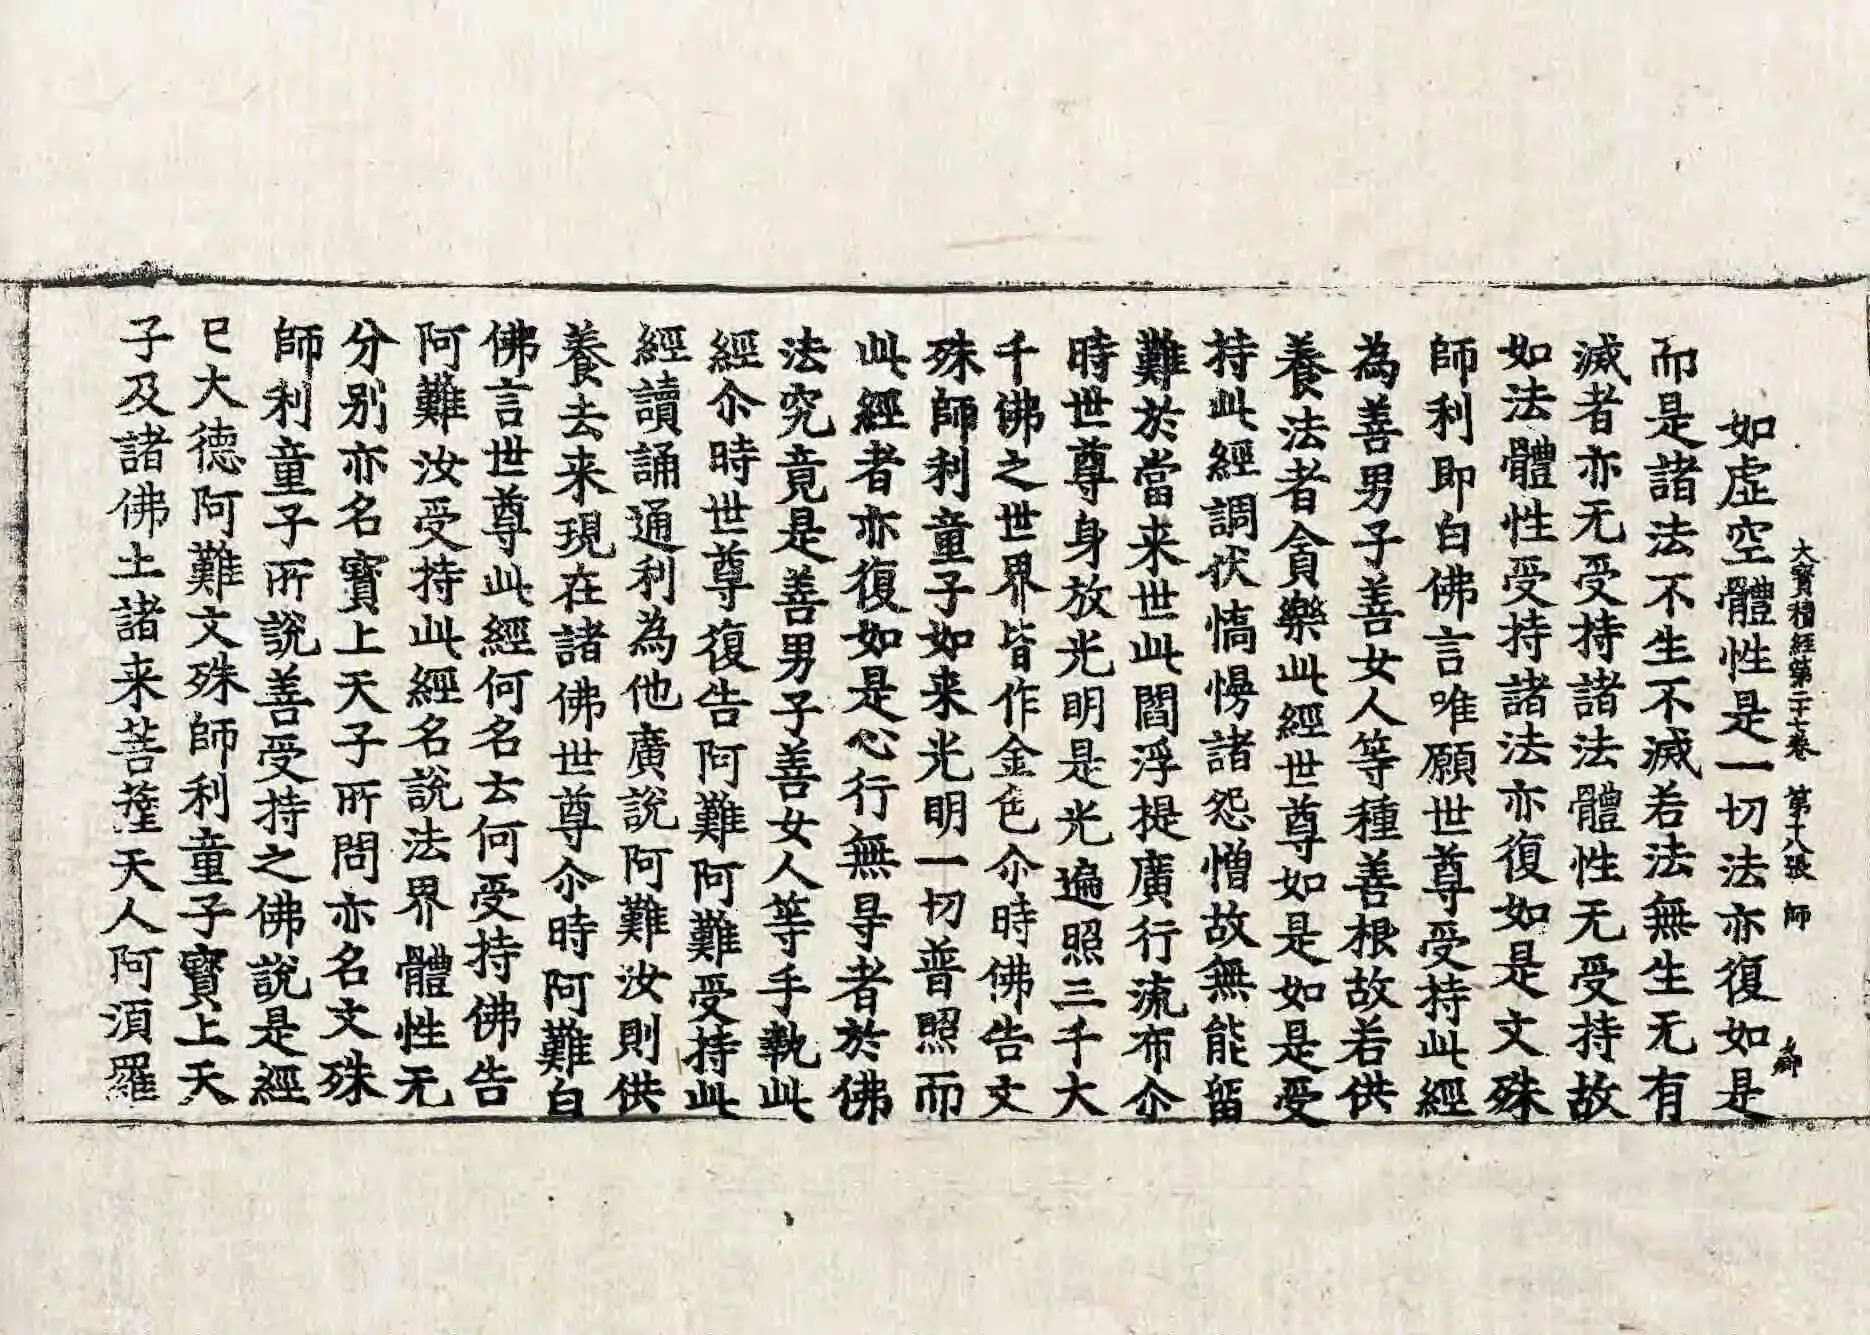 大寳積經第二十七卷 第十八張 師
如虛空體性是一切法亦復如是
而是諸法不生不滅若法無生无有
滅者亦无受持諸法體性无受持故
如法體性受持諸法亦復如是文殊
師利即白佛言唯願世尊受持此經
為善男子善女人等種善根故若供
養法者貪樂此經世尊如是如是受
持此經調伏憍慢諸怨憎故無能留
難於當来世此閻浮提廣行流布尒
時世尊身放光明是光遍照三千大
千佛之世界皆作金色尒時佛告文
殊師利童子如来光明一切普照而
此經者亦復如是心行無㝵者於佛
法究竟是善男子善女人等手執此
經尒時世尊復告阿難阿難受持此
經讀誦通利為他廣說阿難汝則供
養去来現在諸佛世尊尒時阿難白
佛言世尊此經何名云何受持佛告
阿難汝受持此經名說法界體性无
分别亦名寳上天子所問亦名文殊
師利童子所說善受持之佛說是經
已大德阿難文殊師利童子寳上天
子及諸佛土諸来菩薩天人阿湏羅